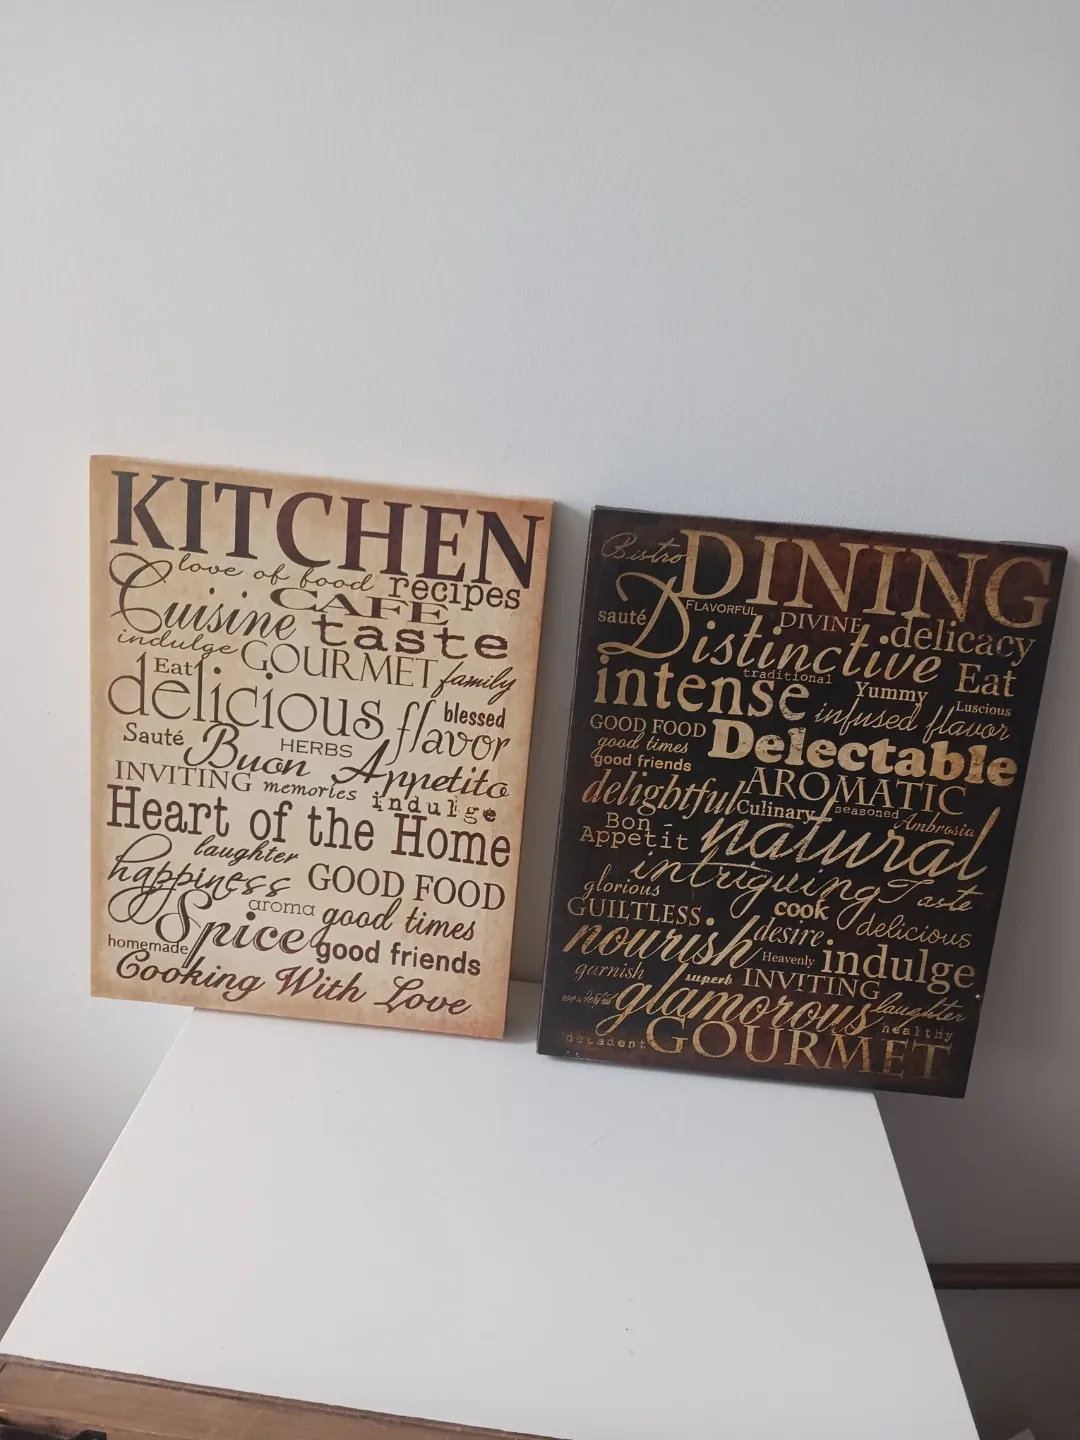 KITCHEN
love of food recipes
CAFE
Cuisine taste
indulge GOURMET family
Eat
delicious flavor blessed
Sauté Buon HERBS Appetito
INVITING memories indulge
Heart of the Home
laughter
happiness GOOD FOOD
aroma good times
Spice
homemade good friends
Cooking With Love
Bistro DINING
sauté FLAVORFUL DIVINE delicacy
Distinctive Eat
traditional Yummy Luscious
intense infused flavor
GOOD FOOD
good times Delectable
good friends
AROMATIC
delightful Culinary seasoned Ambrosia
Bon
Appétit natural
intriguing Taste
glorious
GUILTLESS cook delicious
nourish desire
Heavenly indulge
garnish superb INVITING
wonderful glamorous laughter
healthy
decadent GOURMET